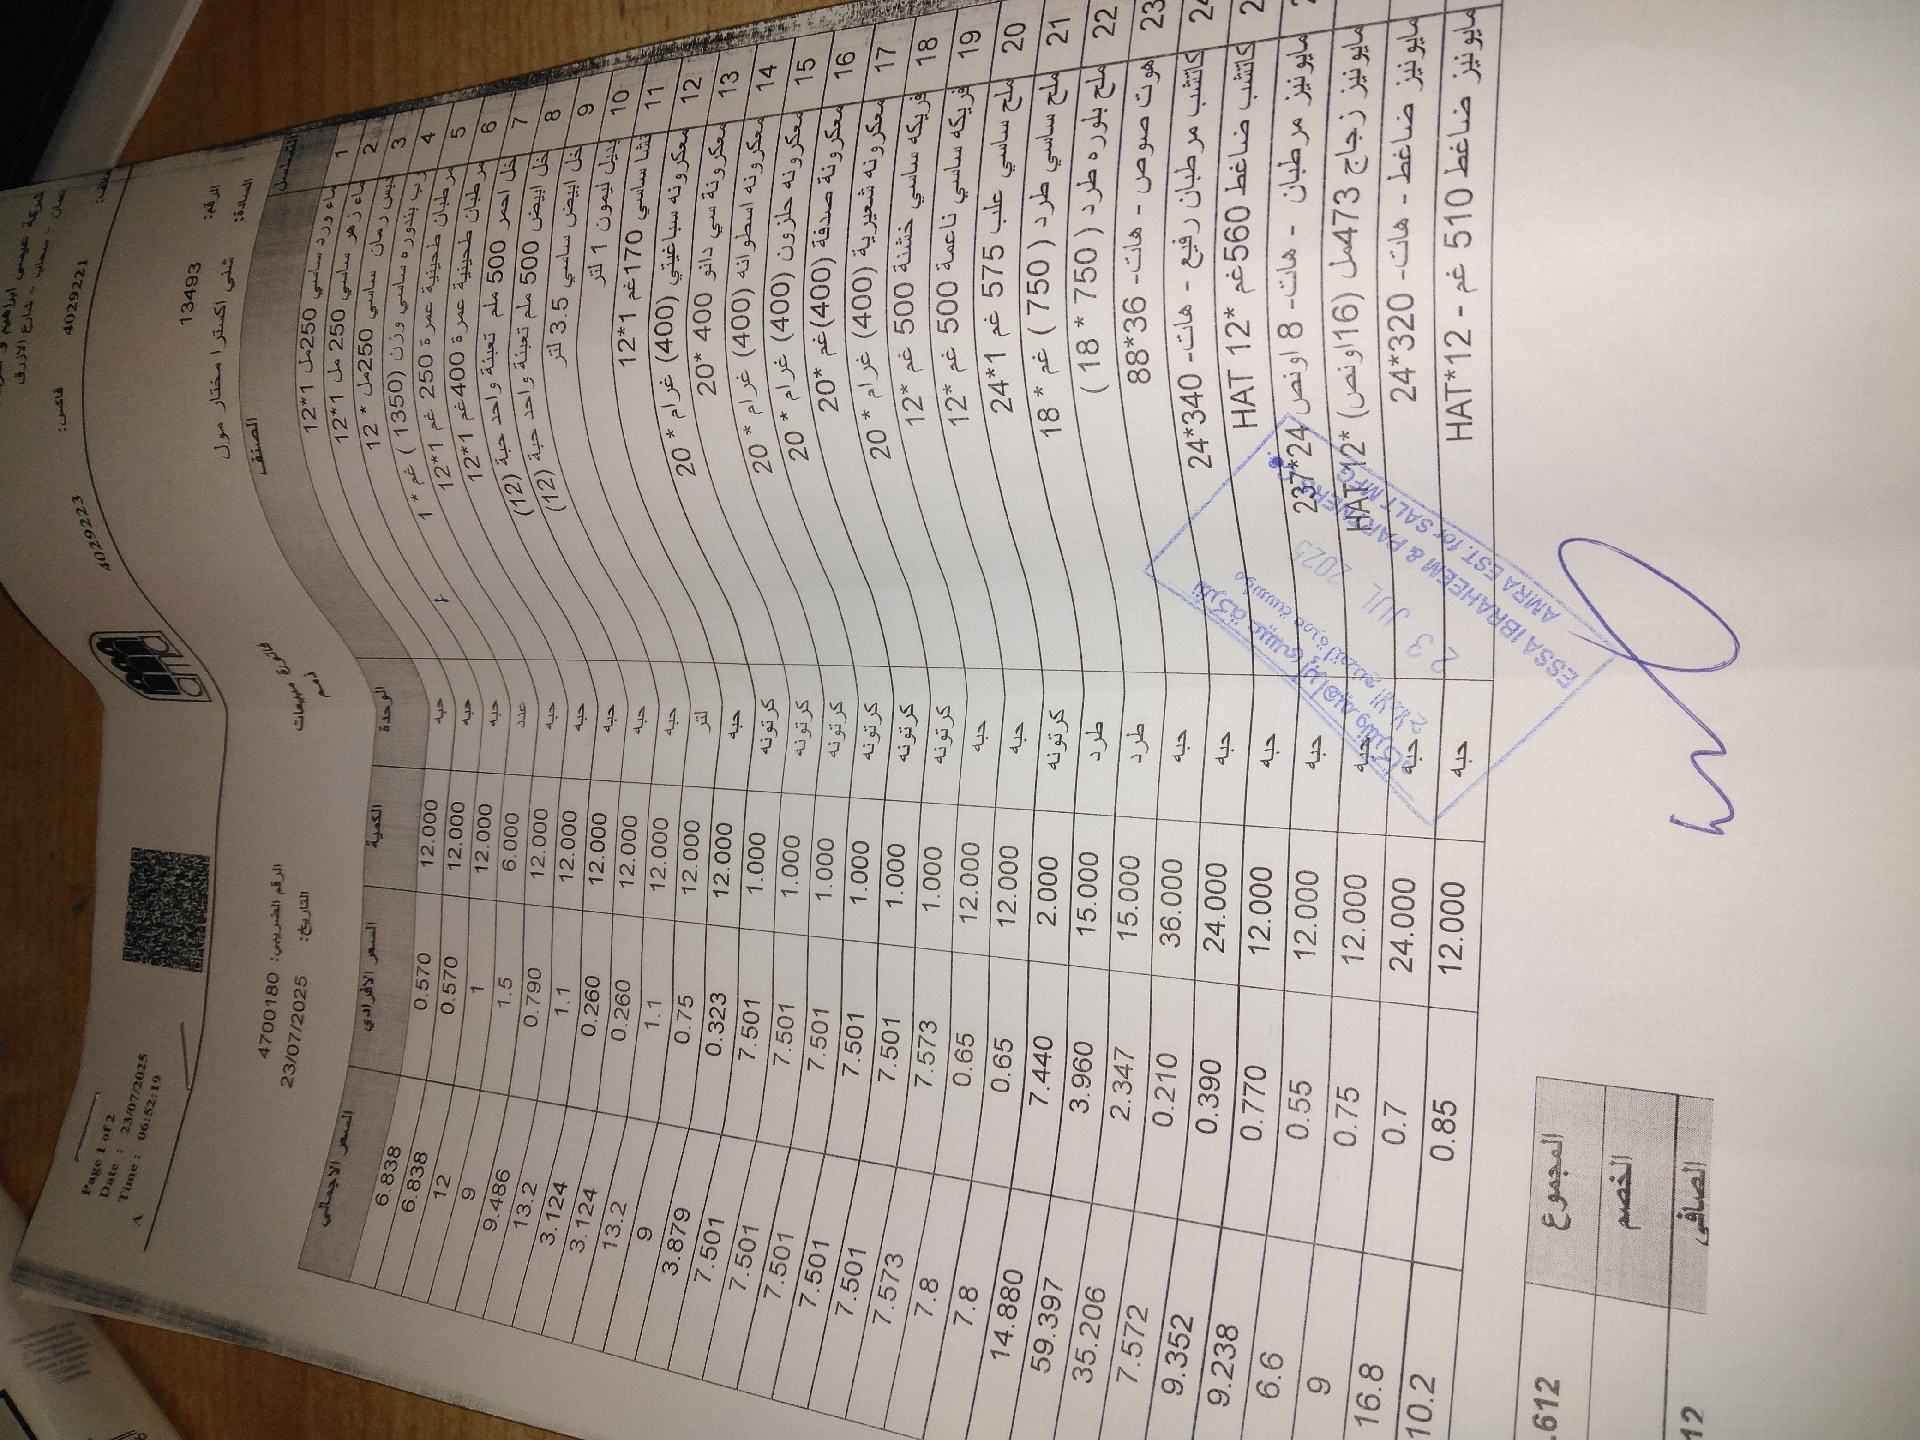 Page 1 of 2
Date : 23/07/2025
Time : 06:52:19
A
شركة عيسى ابراهيم و
سحاب - شارع الازرق
4029221 فاكس: 4029223
فاتورة مبيعات
ذمم
الرقم: 13493 الرقم الضريبي: 4700180
السادة: شلبي اكسترا مختار مول التاريخ: 23/07/2025
التسلسل الصنف الوحدة الكمية السعر الافرادي السعر الاجمالي
1 ماء ورد ساسي 250مل 1*12 حبه 12.000 0.570 6.838
2 ماء زهر ساسي 250 مل 1*12 حبه 12.000 0.570 6.838
3 دبس رمان ساسي 250مل * 12 حبه 12.000 1 12
4 رب بندوره ساسي وزن (1350 ) غم * 1 عدد 6.000 1.5 9
5 مرطبان طحينية عمرة 250 غم 1*12 حبه 12.000 0.790 9.486
6 مرطبان طحينية عمرة 400غم 1*12 حبه 12.000 1.1 13.2
7 خل احمر 500 ملم تعبئة واحد حبة (12) حبه 12.000 0.260 3.124
8 خل ابيض 500 ملم تعبئة واحد حبة (12) حبه 12.000 0.260 3.124
9 خل ابيض ساسي 3.5 لتر حبه 12.000 1.1 13.2
10 بديل ليمون 1 لتر لتر 12.000 0.75 9
11 نشا ساسي 170غم 1*12 حبه 12.000 0.323 3.879
12 معكرونه سباغيتي (400) غرام * 20 كرتونه 1.000 7.501 7.501
13 معكرونة سي دانو 400 *20 كرتونه 1.000 7.501 7.501
14 معكرونه اسطوانه (400) غرام * 20 كرتونه 1.000 7.501 7.501
15 معكرونه حلزون (400) غرام * 20 كرتونه 1.000 7.501 7.501
16 معكرونة صدفة (400)غم *20 كرتونه 1.000 7.501 7.501
17 معكرونه شعيرية (400) غرام * 20 كرتونه 1.000 7.573 7.573
18 فريكه ساسي خشنة 500 غم *12 حبه 12.000 0.65 7.8
19 فريكه ساسي ناعمة 500 غم *12 حبه 12.000 0.65 7.8
20 ملح ساسي علب 575 غم 1*24 كرتونه 2.000 7.440 14.880
21 ملح ساسي طرد ( 750 ) غم * 18 طرد 15.000 3.960 59.397
22 ملح بلوره طرد ( 750 * 18 ) طرد 15.000 2.347 35.206
23 هوت صوص - هات- 36*88 حبه 36.000 0.210 7.572
كاتشب مرطبان رفيع - هات- 340*24 حبه 24.000 0.390 9.352
كاتشب ضاغط 560غم *12 HAT حبه 12.000 0.770 9.238
مايونيز مرطبان - هات- 8 اونص 24*237 حبه 12.000 0.55 6.6
مايونيز زجاج 473مل (16اونص) *12 HAT حبه 12.000 0.75 9
مايونيز ضاغط - هات- 320*24 حبه 24.000 0.7 16.8
مايونيز ضاغط 510 غم - 12*HAT حبه 12.000 0.85 10.2
شركة عيسى إبراهيم وشركاه
مؤسسة عمرة لتصنيع الاملاح
23 JUL 2025
ESSA IBRAHEEM & PARTNERS
AMRA EST. for SALT MFG
المجموع .612
الخصم
الصافي 12